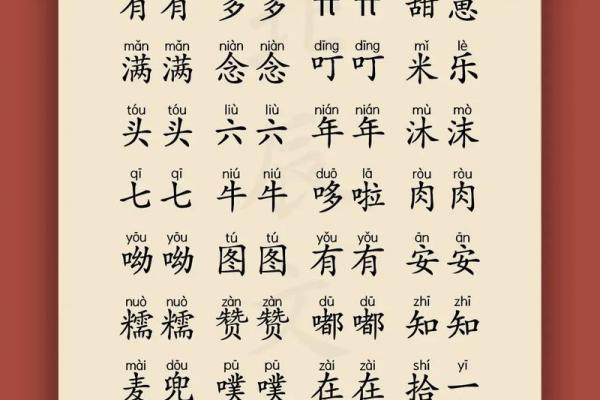 有有 多多 甜
mǎn mǎn niàn niàn dīng dīng mǐ lè
满满 念念 叮叮 米乐
tóu tóu liù liù nián nián mù mò
头头 六六 年年 沐沫
qī qī niú niú duō lā ròu ròu
七七 牛牛 哆啦 肉肉
yōu yōu tú tú yǒu yǒu ān ān
呦呦 图图 有有 安安
nuò nuò zàn zàn dū dū zhī zhī
糯糯 赞赞 嘟嘟 知知
mài dōu pū pū zài zài shí yī
麦兜 噗噗 在在 拾一